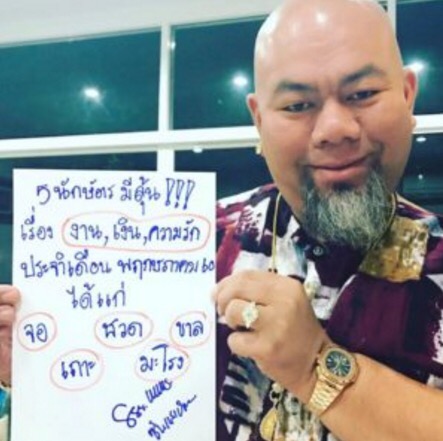 5 นักษัตร มีลุ้น !!!
เรื่อง งาน,เงิน,ความรัก
ประจำเดือน พฤษภาคม 60
ได้แก่
จอ ชวด ขาล
เถาะ มะโรง